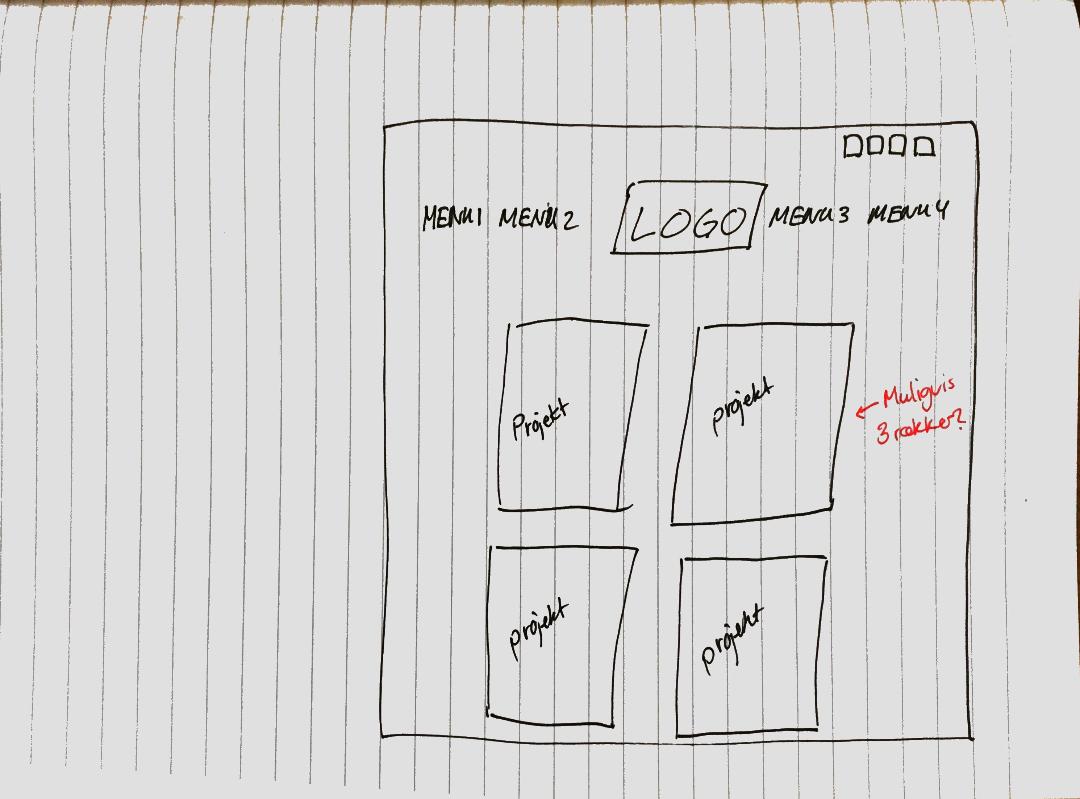 MENU1 MENU2 LOGO MENU3 MENU4
Projekt projekt
← Muligvis
3 rækker?
projekt projekt